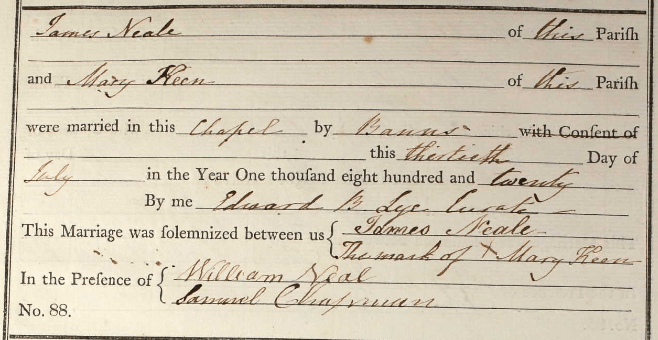 James Neale of this Pariſh
and Mary Keen of this Pariſh
were married in this Chapel by Banns with Conſent of
this thirtieth Day of
July in the Year One thouſand eight hundred and twenty
By me Edward B Lye Curate
This Marriage was ſolemnized between us { James Neale
The mark of X Mary Keen
In the Preſence of { William Neal
Samuel Chapman
No. 88.